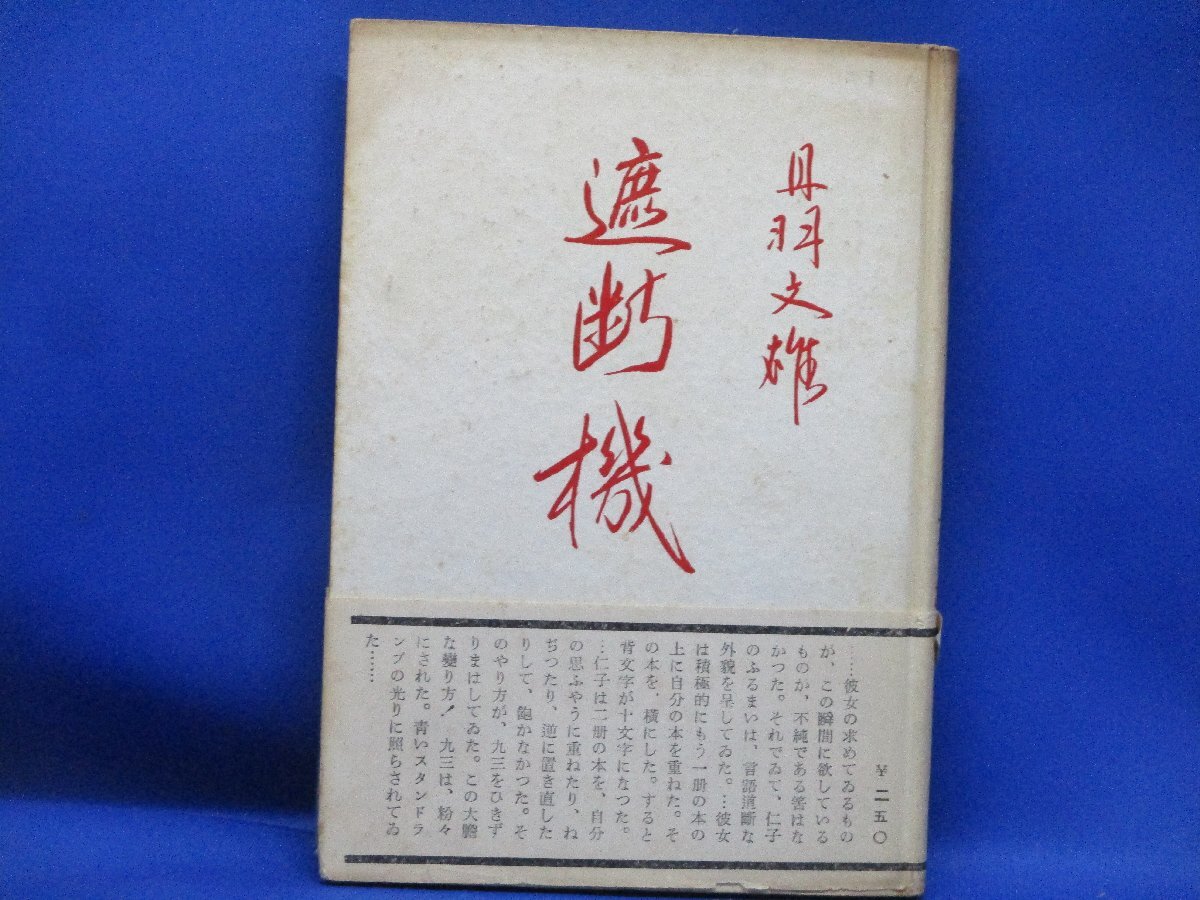 丹羽文雄
遮断機
¥二五〇
……彼女の求めてゐるもの
が、この瞬間に欲している
ものか、不純である筈はな
かつた。それでゐて、仁子
のふるまいは、言語道断な
外貌を呈してゐた。…彼女
は積極的にもう一册の本の
上に自分の本を重ねた。そ
の本を、横にした。すると
背文字が十文字になつた。
…仁子は二册の本を、自分
の思ふやうに重ねたり、ね
ぢつたり、逆に置き直した
りして、飽かなかつた。そ
のやり方が、九三をひきず
りまはしてゐた。この大膽
な變り方！九三は、粉々
にされた。青いスタンドラ
ンプの光りに照らされてゐ
た……